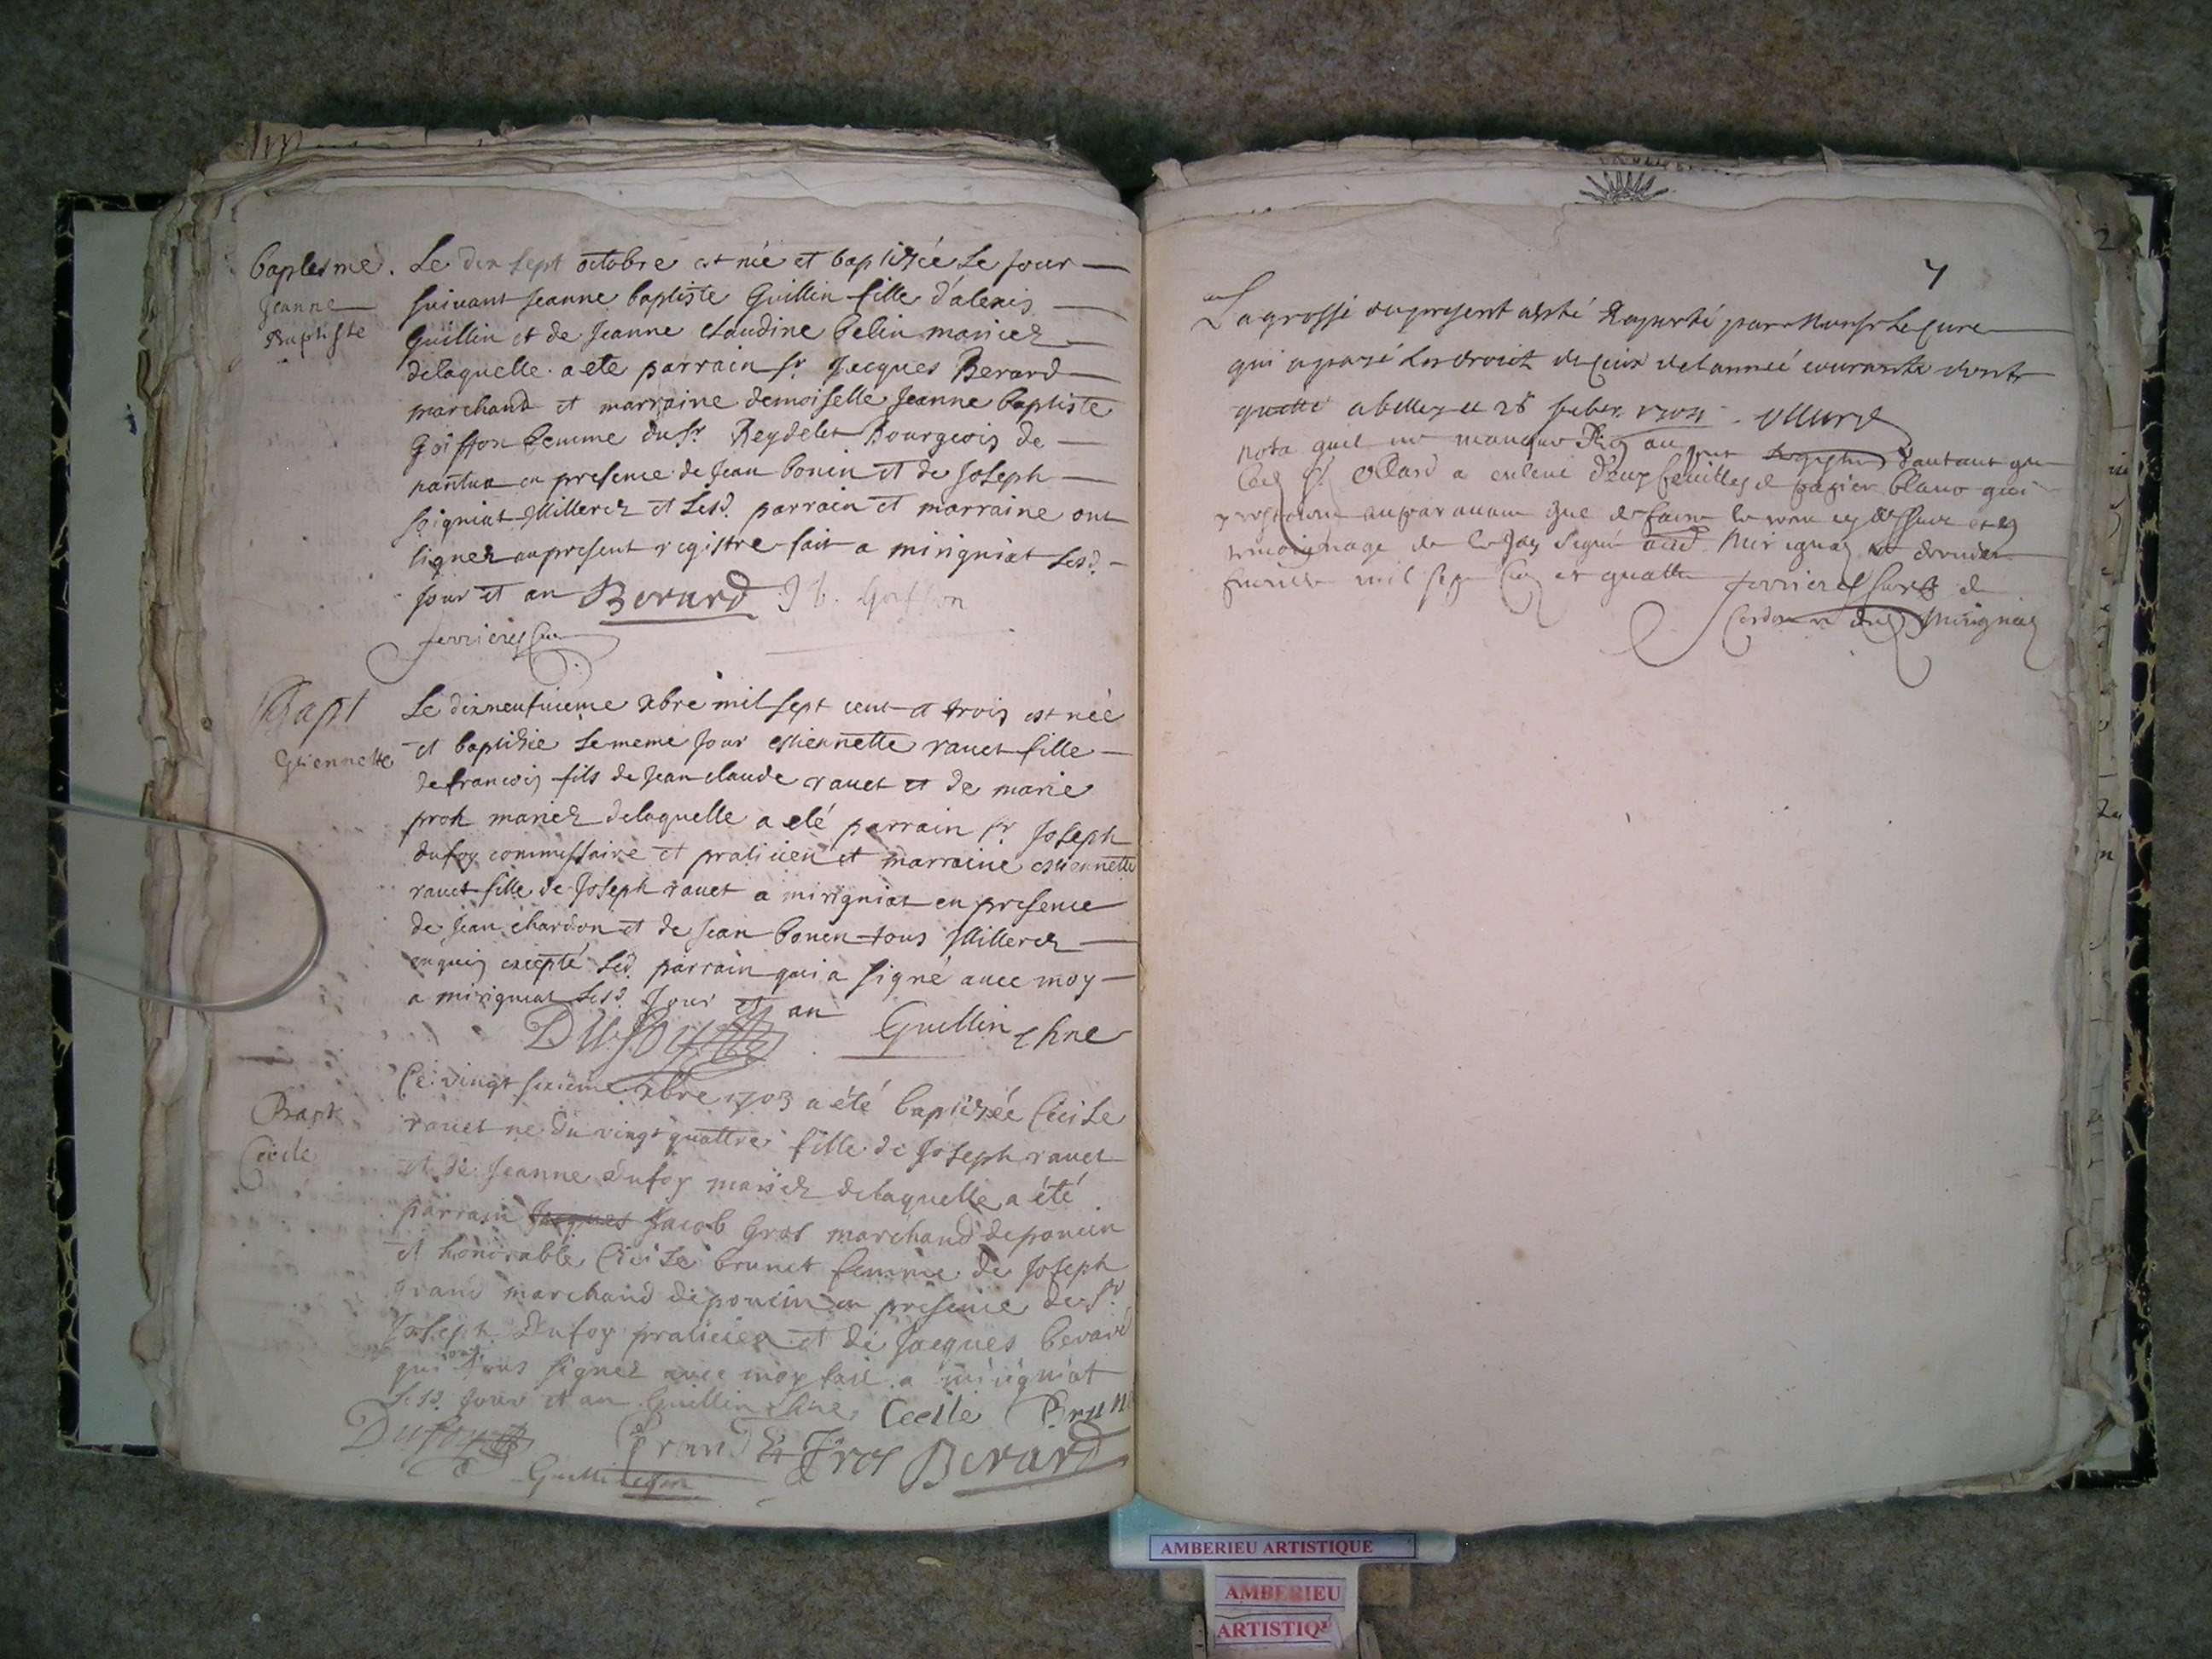 baptesme.
Jeanne
Baptiste
Le dix sept octobre est née et baptizée Le jour
suivant Jeanne baptiste Guillin fille d'alexis
Guillin et de Jeanne claudine belin mariez
delaquelle a ete parrain sr Jacques Berard
marchand et marraine demoiselle Jeanne baptiste
Goiffon femme du sr Reydelet Bourgeois de
nantua en presence de Jean bonin et de Joseph
soigniat Illiterez et Lesd. parrain et marraine ont
signez au present registre fait a mirigniat Lesd.
jour et an Berard J b. Goiffon
ferrieres
Bapt
Estiennette
Le dixneufvieme xbre mil sept cent et trois est née
et baptizée Le meme Jour estiennette ravet fille
de francois fils de Jean claude ravet et de marie
prot mariez delaquelle a eté parrain sr Joseph
dufoy commissaire et praticien et marraine estiennette
ravet fille de Joseph ravet a mirigniat en presence
de Jean chardon et de Jean bonen tous Illiterez
enquis excepté Led. parrain qui a signé avec moy
a mirigniat Lesd. Jour et an
Dufoy Guillin
Bapt
Cécile
Ce vingt sixieme xbre 1703 a été baptizée Cecile
ravet ne du vingt quattre fille de Joseph ravet
et de Jeanne dufoy mariez delaquelle a été
parrain Jacques Jacob Gros marchand de poncin
et honorable Cecile brunet femme de Joseph
grand marchand de poncin en presence de sr
Joseph Dufoy praticien et de Jacques berard
qui ont tous signez avec moy fait a mirigniat
Lesd. Jour et an Guillin Cecile Brun
Dufoy Grand Gros Berard
7
La grosse du present a esté Raporté par Monsr Le Cure
qui a payé Les droict de ceux de l'année courante dont
quitte a belley ce 28 1704
nota quil ne manque Rien au d'autant que
Led. sr a enlevé deux feuilles de papier blanc qui
auparavant que de faire
temoignage de Mirignat
mil sept cent et quattre ferrieres
Mirignat
2
AMBERIEU ARTISTIQUE
AMBERIEU
ARTISTIQU